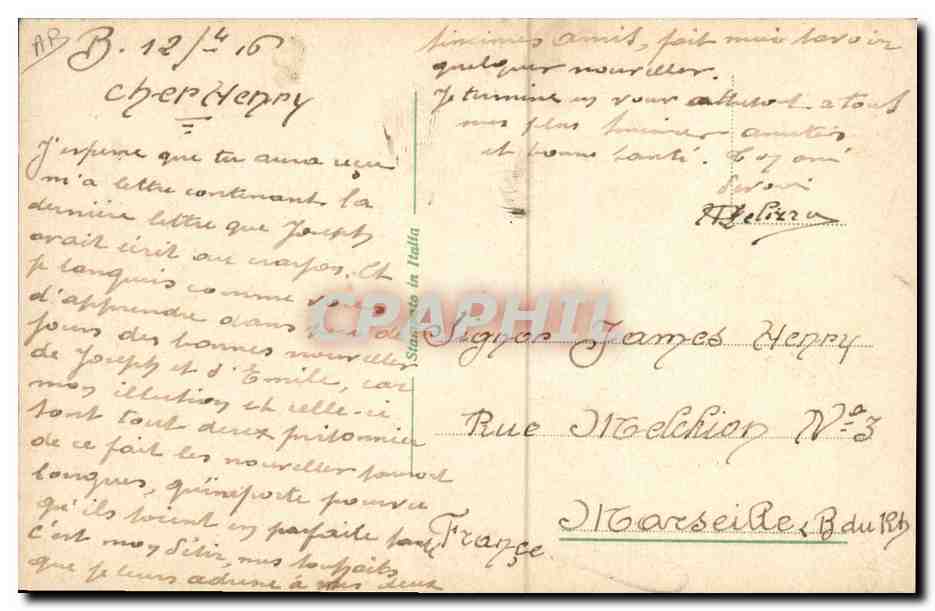 AB
B. 12/4 16
Cher Henry
J'espere que tu aura reçue
m'a lettre contenant la
dernière lettre que Joseph
avait écrit au crayon. Et
je languis comme vous
d'apprendre dans de
jours des bonnes nouvelles
de Joseph et d'Emile, car
mon illution et celle-ci
sont tout deux prisonnier
de ce fait les nouvelles
longues, qu'importe pourvu
qu'ils soient en parfaite
c'est mon désir, mes souhaits
que je leurs adresse à mes deux
sincimes amis, fait moi savoir
quelques nouvelles.
Je termine en vous a tous
mes plus sincères amitiés
et bonne santé. ami
Signor James Henry
Rue Melchion Nº 3
Marseille B du Rh
France
Stampato in Italia
CPAPHIL